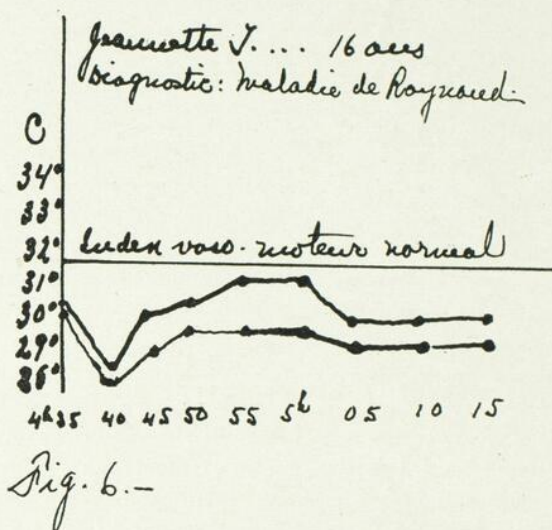 Jeannette J.... 16 ans
Diagnostic: Maladie de Raynaud.
C
34°
33°
32° Index vaso-moteur normal
31°
30°
29°
26°
4h35 40 45 50 55 5h 05 10 15
Fig. 6.-